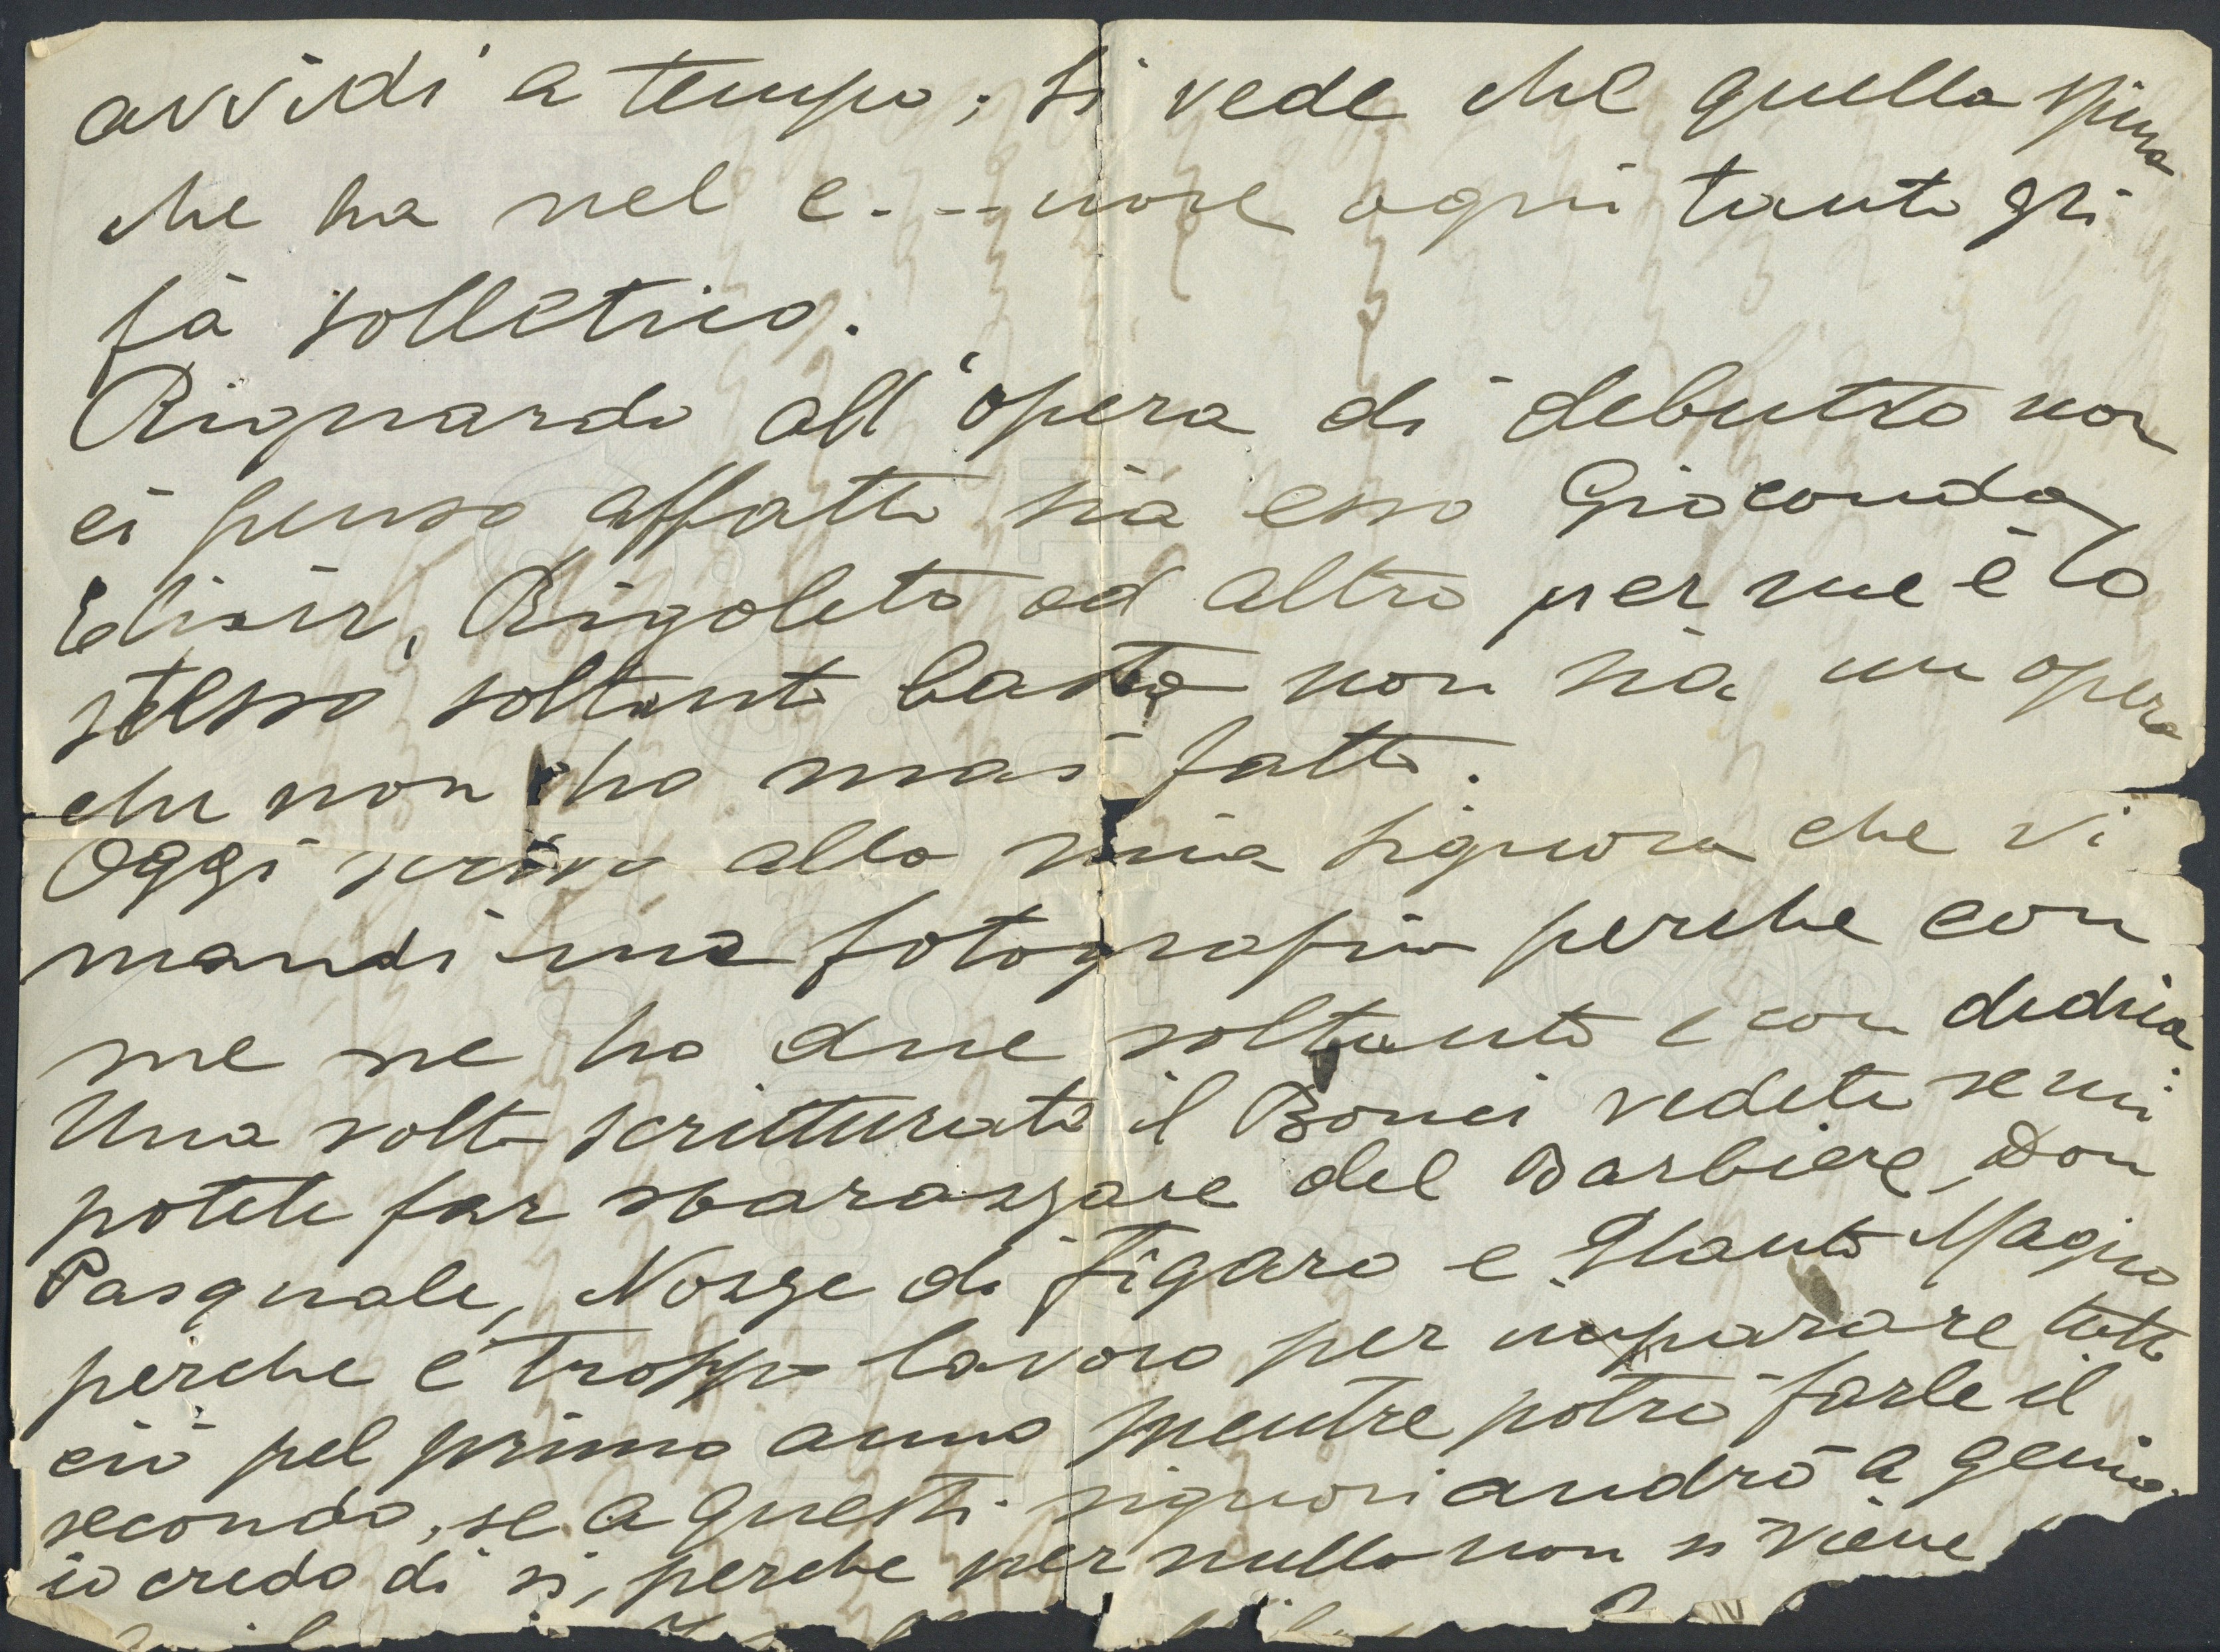 avvidi a tempo; si vede che quella spina
che ha nel c.---uore ogni tanto gli
fà solletico.
Riguardo all'opera di debutto non
ci penso affatto sia esso Gioconda
Elisir, Rigoleto od altro per me è lo
stesso soltanto basta non sia un opera
che non ho mai fatto.
Oggi scrivo alla mia signora che vi
mandi una fotografia perche con
me ne ho due soltanto e con dedica
Una volta scritturato il Bonci vedete se mi
potete far sbarazzare del Barbiere, Don
Pasquale, Nozze di Figaro e Flauto Magico
perche è troppo lavoro per imparare tutto
ciò pel primo anno mentre potrò farle il
secondo, se a questi signori andrò a genio.
io credo di si, perche per nulla non si viene